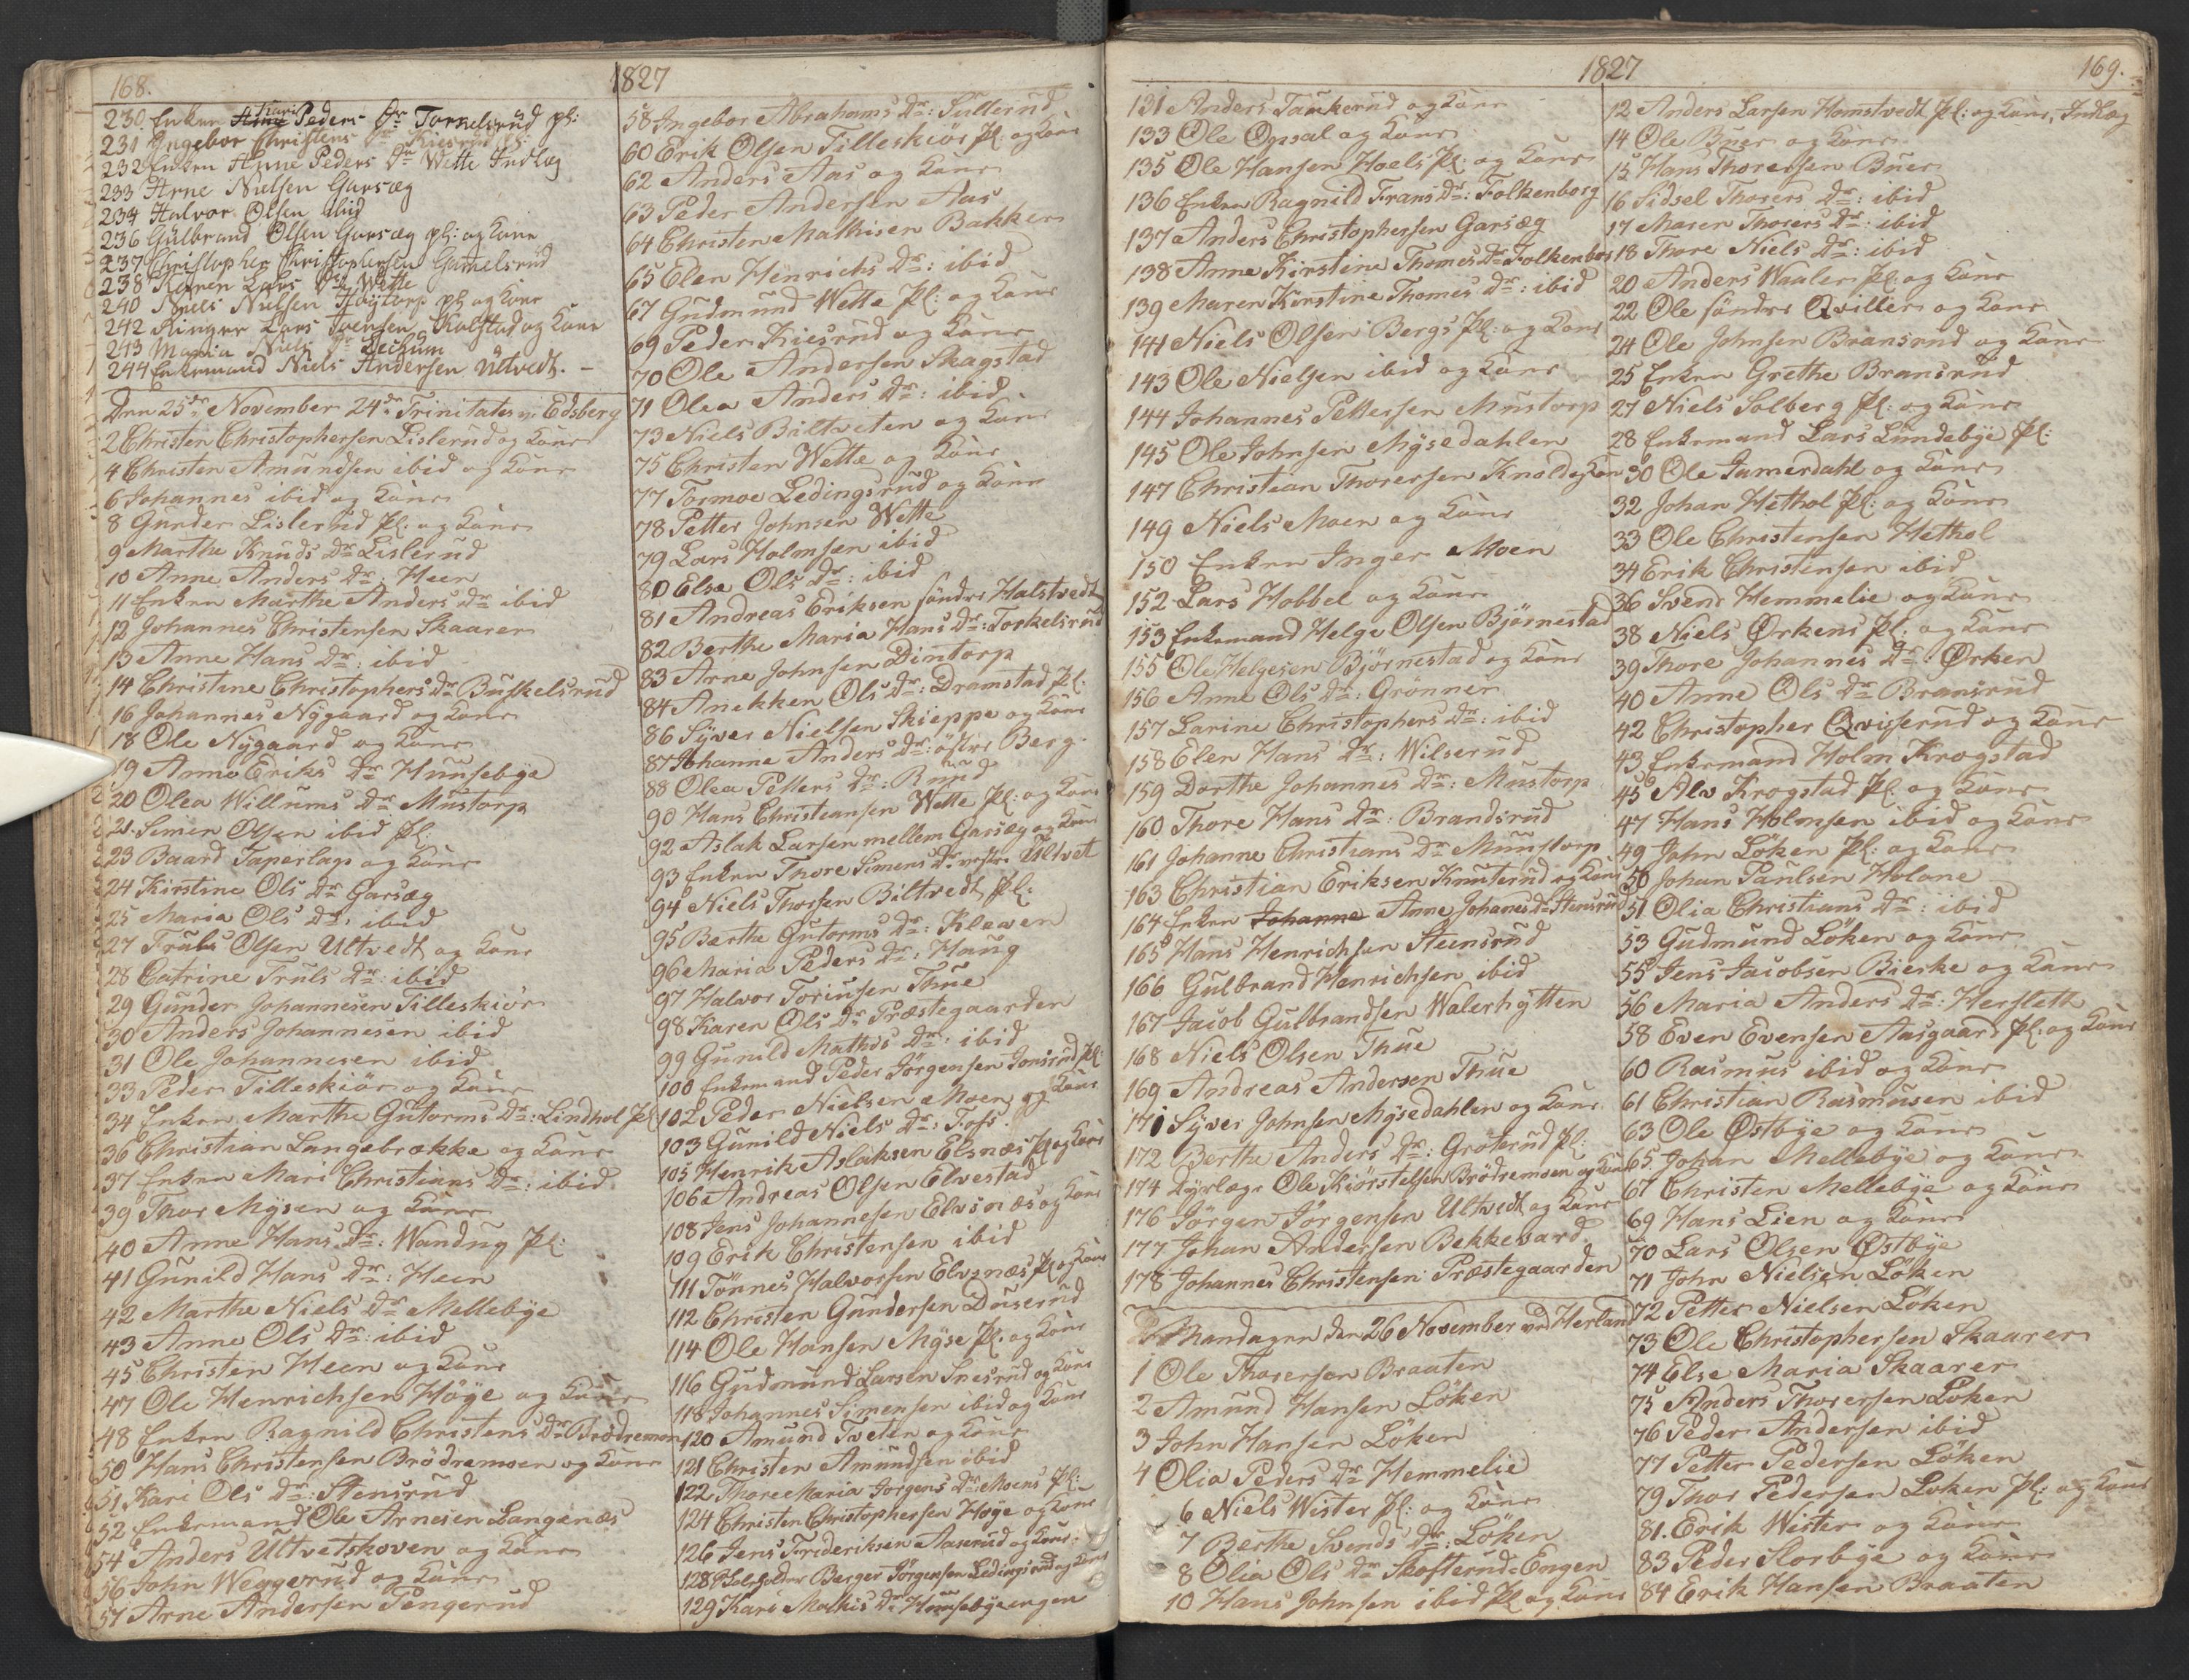 168.
1827
230. Enken Kari Peders Dr Tornelsrud pl:
231 Ingebor Christens Dr
232 Enken Anne Peders Dr Wette Indlæg
233 Arne Nielsen Garsæg
234 Halvor Olsen ibid
236 Gulbrand Olsen Garsæg pl: og Kone
237 Christopher Christophersen Gamelsrud
238 Karen Lars Dr Wette
240 Niels Nielsen Høytorp pl og Kone
242 Ringer Lars Ivensen Kolstad og Kone
243 Maria Niels Dr
244 Enkemand Niels Andersen Ultvedt. -
Den 25de November 24de Trinitates in Edsberg
2 Christen Christophersen Lislerud og Kone
4 Christen Amundsen ibid og Kone
6 Johannes ibid og Kone
8 Gunder Lislerud Pl: og Kone
9 Marthe Knuds Dr Lislerud
10 Anne Anders Dr: Heen
11 Enken Marthe Anders Dr ibid
12 Johannes Christensen Skaarer
13 Anne Hans Dr: ibid
14 Christine Christophers Dr Buskelsrud
16 Johannes Nygaard og Kone
18 Ole Nygaard og Kone
19 Anne Eriks Dr Huusebye
20 Olea Willums Dr Mustorp
21. Simen Olsen ibid Pl:
23 Baard Taperlap og Kone
24 Kirstine Ols Dr Garsæg
25 Maria Ols Dr: ibid
27 Truls Olsen Ultvedt og Kone
28 Catrine Truls Dr: ibid
29 Gunder Johannesen Tilleskiør
30 Anders Johannesen ibid
31 Ole Johannesen ibid
33 Peder Tilleskiør og Kone
34 Enken Marthe Gutorms Dr: Lindhol Pl
36 Christian Langebrække og Kone
37 Enken Mari Christians Dr: ibid
39 Thor Mysen og Kone
40 Anne Hans Dr: Wandug Pl:
41 Gunild Hans Dr: Heen
42 Marthe Niels Dr Mellebye
43 Anne Ols Dr: ibid
45 Christen Heen og Kone
47 Ole Henrichsen Høye og Kone
48 Enken Ragnild Christens Dr Brødremoen
50 Hans Christensen Brødremoen og Kone
51 Kari Ols Dr: Stensrud
52 Enkemand Ole Arnesen Langenæs
54 Anders Ultvetskoven og Kone
56 John Weggerud og Kone
57 Arne Andersen Tengerud
58 Ingebor Abrahams Dr: Sullerud
60 Erik Olsen Tilleskiør Pl og Kone
62 Anders Aas og Kone
63 Peder Andersen Aas
64 Christen Mathisen Bakker
65 Elen Henrichs Dr: ibid
67 Gudmund Wette Pl: og Kone
69 Peder Kiesrud og Kone
70 Ole Andersen Skagstad
71 Olea Anders Dr: ibid
73 Niels Biltveten og Kone
75 Christen Wette og Kone
77 Tormoe Ledingsrud og Kone
78 Petter Johnsen Wette
79 Lars Holmsen ibid
80 Else Ols Dr: ibid
81 Andreas Eriksen søndre Halstvedt
82 Berthe Maria Hans Dr: Torkelsrud
83 Arne Johnsen Dintorp
84 Anekken Ols Dr: Dramstad Pl:
86 Syver Nielsen Skieppe og Kone
87 Johanne Anders Dr: østre Berg
88 Olea Petters Dr: Ruud
90 Hans Christiansen Wette Pl: og Kone
92 Aslak Larsen mellem Garsæg og Kone
93 Enken Thore Simens Dr vestre Ultvet
94 Niels Thorsen Biltvedt Pl:
95 Berthe Gutorms Dr: Kleven
96 Maria Peders Dr: Haug
97 Halvor Toriusen Thue
98 Karen Ols Dr Præstegaarden
99 Gunild Mathis Dr: ibid
100 Enkemand Peder Jørgensen Jonsrud Pl:
102 Peder Nielsen Moen og Kone
103 Gunild Niels Dr: Foss
105 Henrik Aslaksen Elsnæs Pl og Kone
106 Andreas Olsen Elvestad
108 Jens Johannesen Elvsnæs og Kone
109 Erik Christensen ibid
111 Tønnes Halvorsen Elvsnæs Pl og Kone
112 Christen Gundersen Duserud
114 Ole Hansen Myse Pl: og Kone
116 Gudmund Larsen Snesrud og Kone
118 Johannes Simensen ibid og Kone
120 Amund Tveten og Kone
121 Christen Amundsen ibid
122 Thore Maria Jørgens Dr: Moens Pl:
124 Christen Christophersen Høye og Kone
126 Jens Frideriksen Aaserud og Kone
128 Skoleholder Børger Jørgensen Ledingsrud og Kone
129 Kari Mathis Dr Huusebyeengen
1827
169.
131 Anders Taukerud og Kone
133 Ole Opsal og Kone
135 Ole Hansen Hoels Pl: og Kone
136 Enken Ragnild Frans Dr: Folkenborg
137 Anders Christophersen Garsæg
138 Anne Kirstine Thomes Dr Folkenborg
139 Maren Kirstine Thomes Dr: ibid
141 Niels Olsen Bergs Pl: og Kone
143 Ole Nielsen ibid og Kone
144 Johannes Pettersen Mustorp
145 Ole Johnsen Mysedahlen
147 Christian Thorersen Knold og Kone
149 Niels Moen og Kone
150 Enken Inger Moen
152 Lars Hobbel og Kone
153 Enkemand Helge Olsen Bjørnestad
155 Ole Helgesen Bjørnestad og Kone
156 Anne Ols Dr: Grønner
157 Larine Christophers Dr: ibid
158 Elen Hans Dr: Wilserud
159 Dorthe Johannes Dr: Mustorp
160 Thore Hans Dr: Brandsrud
161 Johanne Christians Dr Muustorp
163 Christian Eriksen Knuterud og Kone
164 Enken Johanne Anne Johanes Dr Stensrud
165 Hans Henrichsen Steensrud
166 Gulbrand Henrichsen ibid
167 Jacob Gulbrandsen Walerhytten
168 Niels Olsen Thue
169 Andreas Andersen Thue
171 Syver Johnsen Mysedahlen og Kone
172 Berthe Anders Dr: Grøterud Pl:
174 Dyrlæge Ole Kiørstelsen Brødremoen og Kone
176 Jørgen Jørgensen Ultvedt og Kone
177 Johan Andersen Bekkevard
178 Johannes Christensen Præstegaarden
Mandagen den 26 November ved Herland
1 Ole Thorersen Braaten
2 Amund Hansen Løken
3 John Hansen Løken
4 Olia Peders Dr Hemmelie
6 Niels Wister Pl: og Kone
7 Berthe Svends Dr: Løken
8 Olia Ols Dr Skofterud-Engen
10 Hans Johnsen ibid Pl og Kone
12 Anders Larsen Homstvedt Pl: og Kone, Indlæg
14 Ole Buer og Kone
15 Hans Thorersen Buer
16 Sidsel Thorers Dr: ibid
17 Maren Thorers Dr: ibid
18 Thore Niels Dr: ibid
20 Anders Waaler Pl: og Kone
22 Ole søndre Qviller og Kone
24 Ole Johnsen Bransrud og Kone
25 Enken Grethe Bransrud
27 Niels Solberg Pl: og Kone
28 Enkemand Lars Lundebye Pl:
30 Ole Jamerdahl og Kone
32 Johan Hethol Pl: og Kone
33 Ole Christensen Hethol
34 Erik Christensen ibid
36 Svend Hemmelie og Kone
38 Niels Ørkens Pl: og Kone
39 Thore Johannes Dr: Ørken
40 Anne Ols Dr Bransrud
42 Christopher Qvisserud og Kone
43 Enkemand Holm Krogstad
45 Alv Krogstad Pl: og Kone
47 Hans Holmsen ibid og Kone
49 John Løken Pl: og Kone
50 Johan Paulsen Holone
51 Olia Christians Dr: ibid
53 Gudmund Løken og Kone
55 Jens Jacobsen Bierke og Kone
56 Maria Anders Dr: Hersleth
58 Even Evensen Aasgaard Pl: og Kone
60 Rasmus ibid og Kone
61 Christian Rasmusen ibid
63 Ole Østbye og Kone
65 Johan Mellebye og Kone
67 Christen Mellebye og Kone
69 Hans Lien og Kone
70 Lars Olsen Østbye
71 John Nielsen Løken
72 Petter Nielsen Løken
73 Ole Christophersen Skaarer
74 Else Maria Skaarer
75 Anders Thorersen Løken
76 Peder Andersen ibid
77 Petter Pedersen Løken
79 Thor Pedersen Løken Pl: og Kone
81. Erik Wister og Kone
83 Peder Slorbye og Kone
84 Erik Hansen Braaten